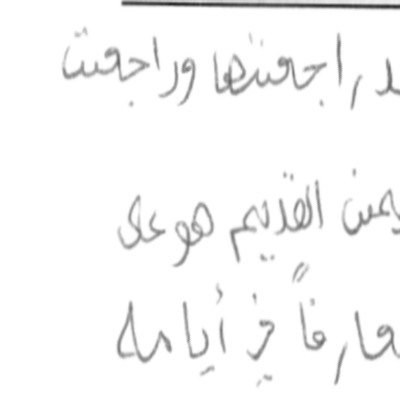 راجعتها وراجعت
اليمن القديم هو على
عارفاً في أيامه